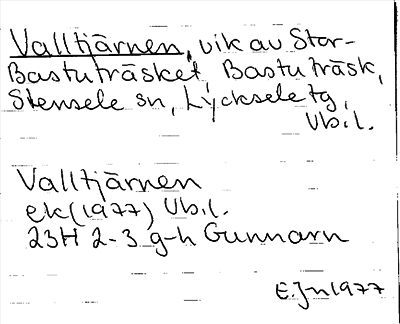 Valltjärnen, vik av Stor-
Bastuträsket, Bastuträsk,
Stensele sn, Lycksele tg,
Vb.l.
Valltjärnen
ek(1977) Vb.l.
23H 2-3 g-h Gunnarn
E.Jn 1977